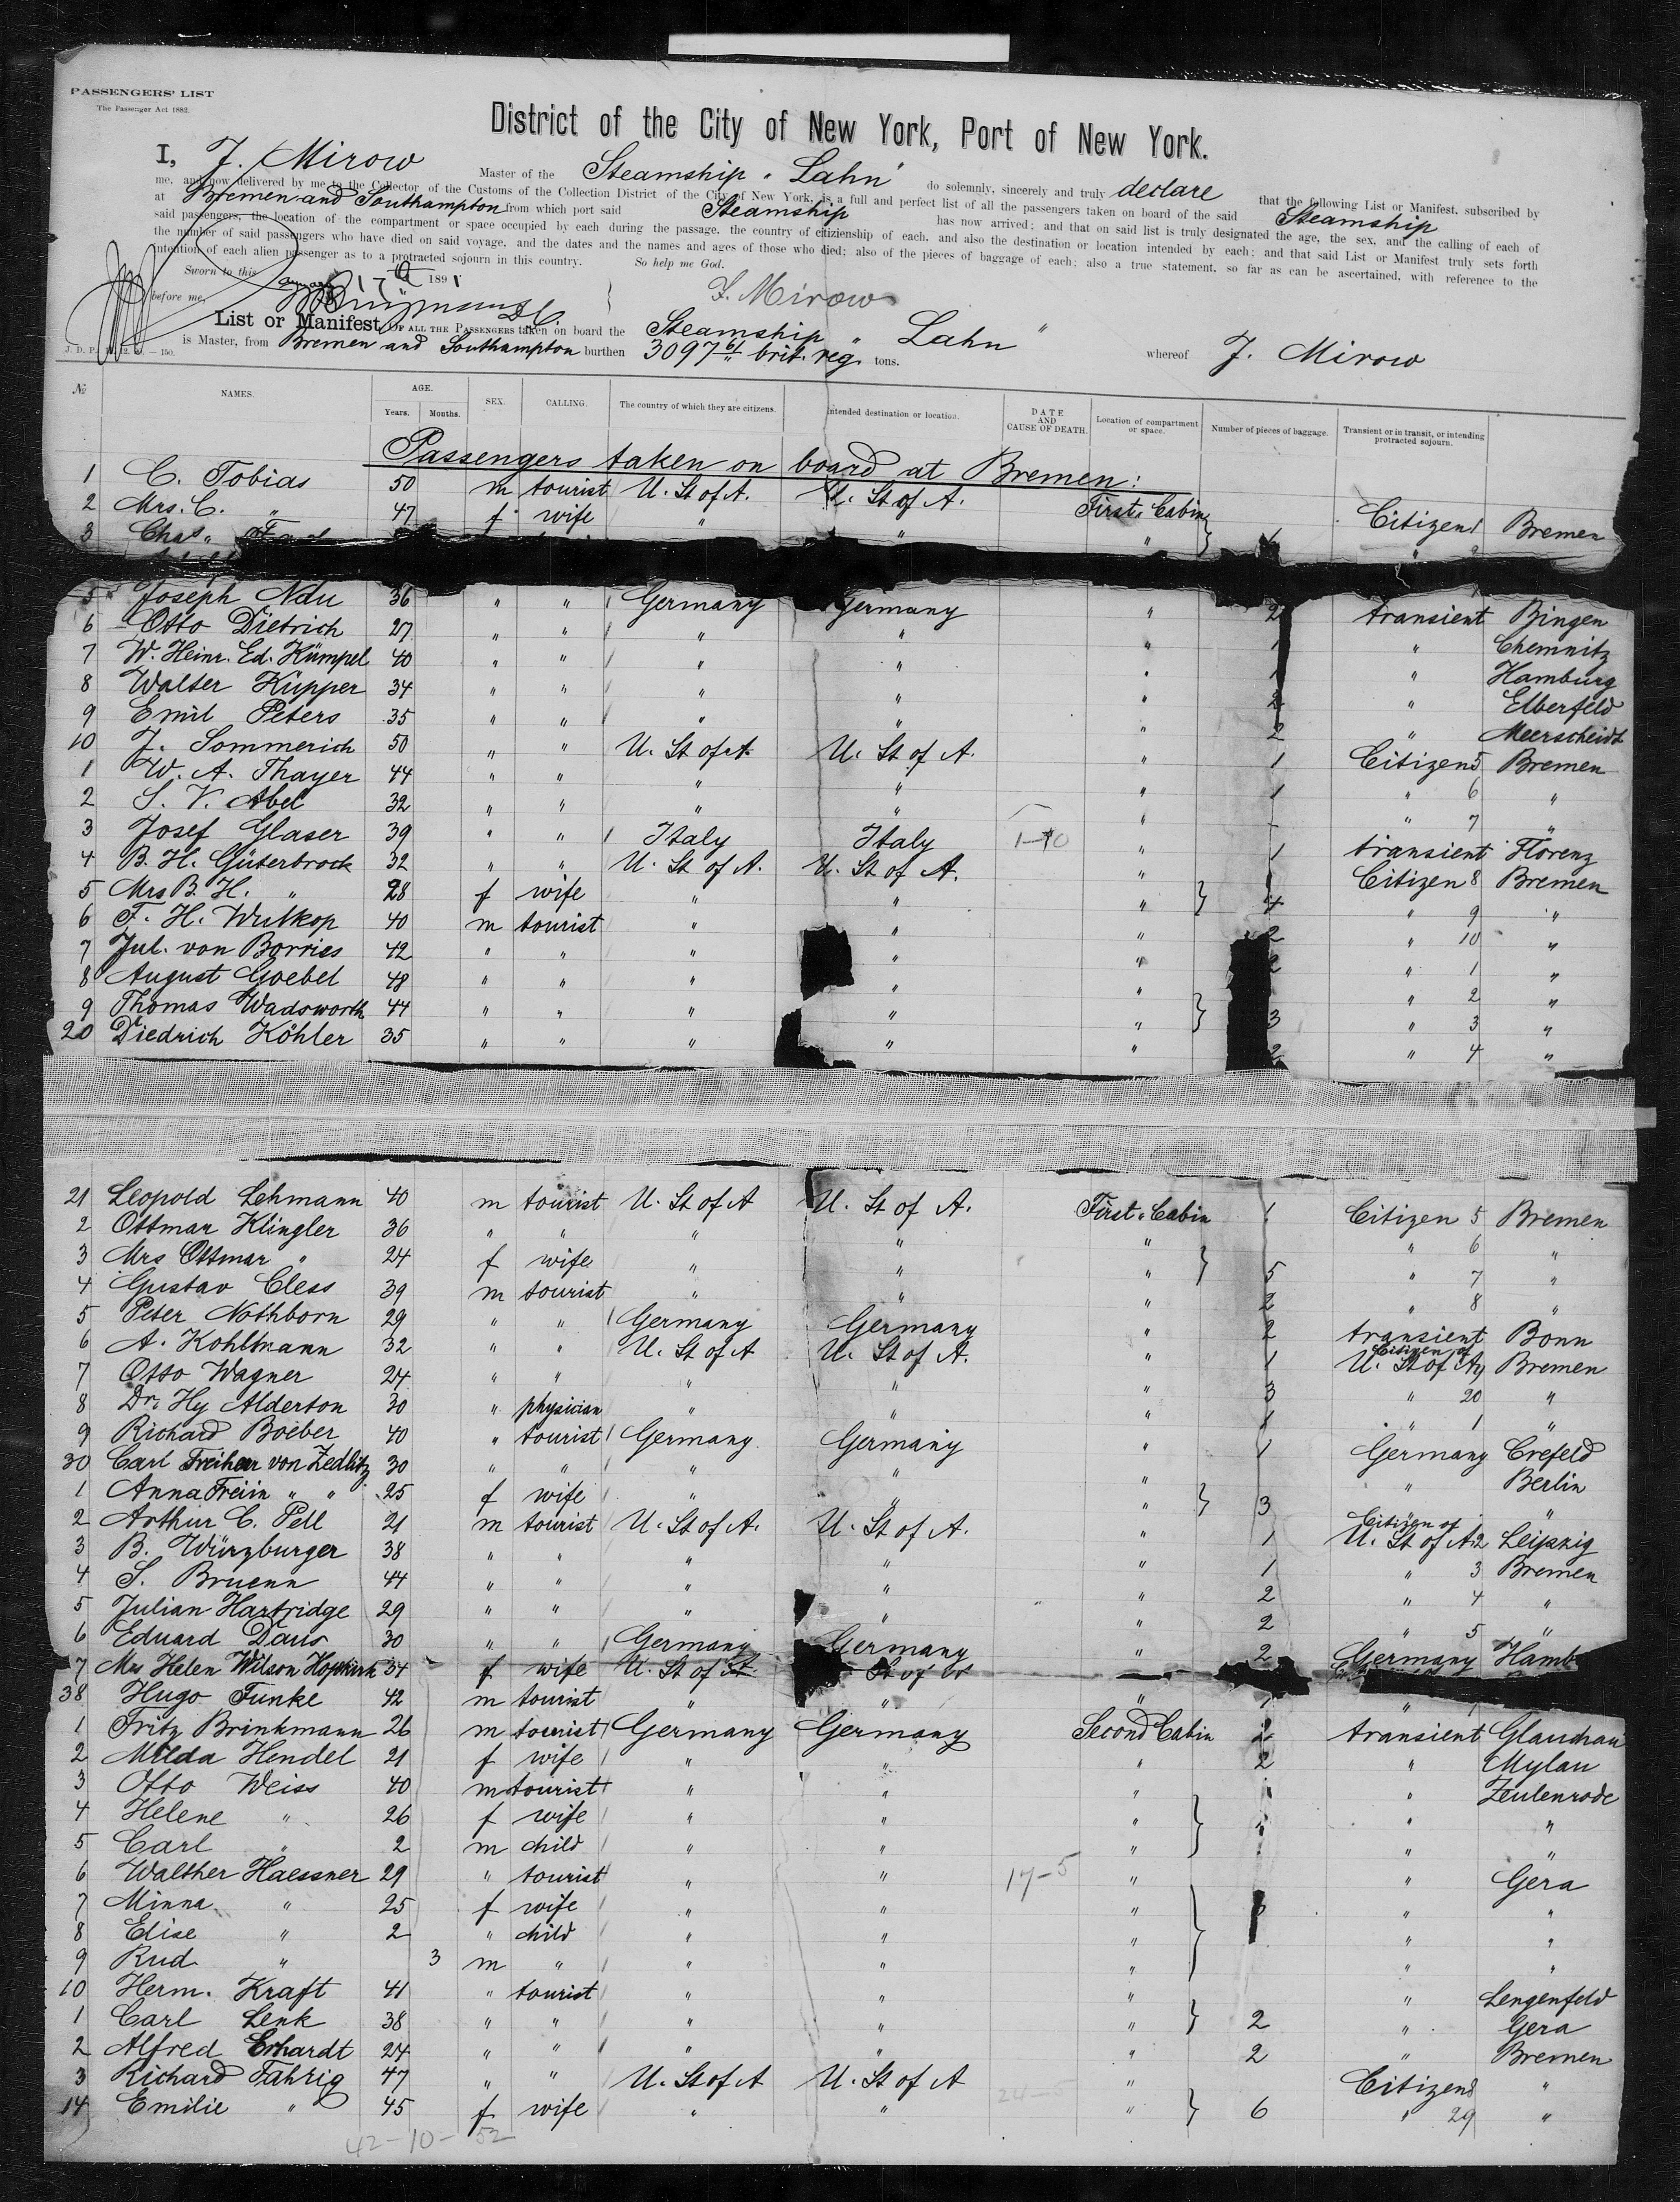 PASSENGERS' LIST
The Passenger Act 1882.
District of the City of New York, Port of New York.
I, J. Mirow Master of the Steamship "Lahn" do solemnly, sincerely and truly declare that the following List or Manifest, subscribed by
me, and now delivered by me to the Collector of the Customs of the Collection District of the City of New York, is a full and perfect list of all the passengers taken on board of the said Steamship
at Bremen and Southampton from which port said Steamship has now arrived; and that on said list is truly designated the age, the sex, and the calling of each of
said passengers, the location of the compartment or space occupied by each during the passage, the country of citizienship of each, and also the destination or location intended by each; and that said List or Manifest truly sets forth
the number of said passengers who have died on said voyage, and the dates and the names and ages of those who died; also of the pieces of baggage of each; also a true statement, so far as can be ascertained, with reference to the
intention of each alien passenger as to a protracted sojourn in this country. So help me God.
Sworn to this 1891
before me, J. Mirow
List or Manifest OF ALL THE PASSENGERS taken on board the Steamship "Lahn" whereof J. Mirow
is Master, from Bremen and Southampton burthen 3097 61/" brit. reg. tons.
J. D. P. — 150.
№ NAMES. AGE. Years. Months. SEX. CALLING. The country of which they are citizens. Intended destination or location. DATE AND CAUSE OF DEATH. Location of compartment or space. Number of pieces of baggage. Transient or in transit, or intending protracted sojourn.
Passengers taken on board at Bremen:
1 C. Tobias 50 m tourist U. St of A. U. St of A. First Cabin Citizen 1 Bremen
2 Mrs. C. " 47 f wife " " "
3 Chas
5 Joseph Ndu 36 " " Germany Germany " 2 transient Bingen
6 Otto Dietrich 27 " " " " " 1 " Chemnitz
7 W. Heinr. Ed. Kümpel 40 " " " " " 1 " Hamburg
8 Walter Küpper 34 " " " " " 2 " Elberfeld
9 Emil Peters 35 " " " " " 2 " Meerscheidt
10 J. Sommerich 50 " " U. St of A. U. St of A. " 1 Citizen 5 Bremen
1 W. A. Thayer 44 " " " " " 1 " 6 "
2 S. V. Abel 32 " " " " " " 7 "
3 Josef Glaser 39 " " Italy Italy 1-10 " 1 transient Florenz
4 B. H. Güterbrock 32 " " U. St of A. U. St of A. " Citizen 8 Bremen
5 Mrs B. H. " 28 f wife " " " 4 " 9 "
6 F. H. Wulkop 40 m tourist " " " 2 " 10 "
7 Jul. von Borries 42 " " " " " 2 " 1 "
8 August Goebel 48 " " " " " " 2 "
9 Thomas Wadsworth 44 " " " " " 3 " 3 "
20 Diedrich Köhler 35 " " " " " 2 " 4 "
21 Leopold Lehmann 40 m tourist U. St of A U. St of A. First Cabin 1 Citizen 5 Bremen
2 Ottmar Klingler 36 " " " " " " 6 "
3 Mrs Ottmar " 24 f wife " " " 5 " 7 "
4 Gustav Cless 39 m tourist " " " 2 " 8 "
5 Peter Nothborn 29 " " Germany Germany " 2 transient Bonn
6 A. Kohltmann 32 " " U. St of A U. St of A. " 1 Citizen of U. St of A 9 Bremen
7 Otto Wagner 24 " " " " " 3 " 20 "
8 Dr. Hy Alderton 30 " physician " " " 1 " 1 "
9 Richard Boeber 40 " tourist Germany Germany " 1 Germany Crefeld
30 Carl Freiherr von Zedlitz 30 " " " " " " Berlin
1 Anna Freiin " " 25 f wife " " " 3 "
2 Arthur C. Pell 21 m tourist U. St of A. U. St of A. " 1 Citizen of U. St of A. 2 Leipzig
3 B. Würzburger 38 " " " " " 1 " 3 Bremen
4 S. Bruenn 44 " " " " " 2 " 4 "
5 Julian Hartridge 29 " " " " " 2 " 5 "
6 Eduard Daus 30 " " Germany Germany " 2 Germany Hamb
7 Mrs Helen Wilson Hopkirk 34 f wife U. St of A. St of A
38 Hugo Funke 42 m tourist " " " 1 "
1 Fritz Brinkmann 26 m tourist Germany Germany Second Cabin 2 transient Glauchau
2 Milda Hendel 21 f wife " " " 2 " Mylau
3 Otto Weiss 40 m tourist " " " " Zeulenrode
4 Helene " 26 f wife " " " " "
5 Carl " 2 m child " " " " "
6 Walther Haessner 29 " tourist " " 17-5 " " Gera
7 Minna " 25 f wife " " " " "
8 Elise " 2 " child " " " " "
9 Rud. " 3 m " " " " " "
10 Herm. Kraft 41 " tourist " " " " Lengenfeld
1 Carl Lenk 38 " " " " " 2 " Gera
2 Alfred Erhardt 24 " " " " " 2 " Bremen
3 Richard Fahrig 47 " " U. St of A U. St of A 24-5 " Citizen 8 "
14 Emilie " 45 f wife " " " 6 " 29 "
42-10-52